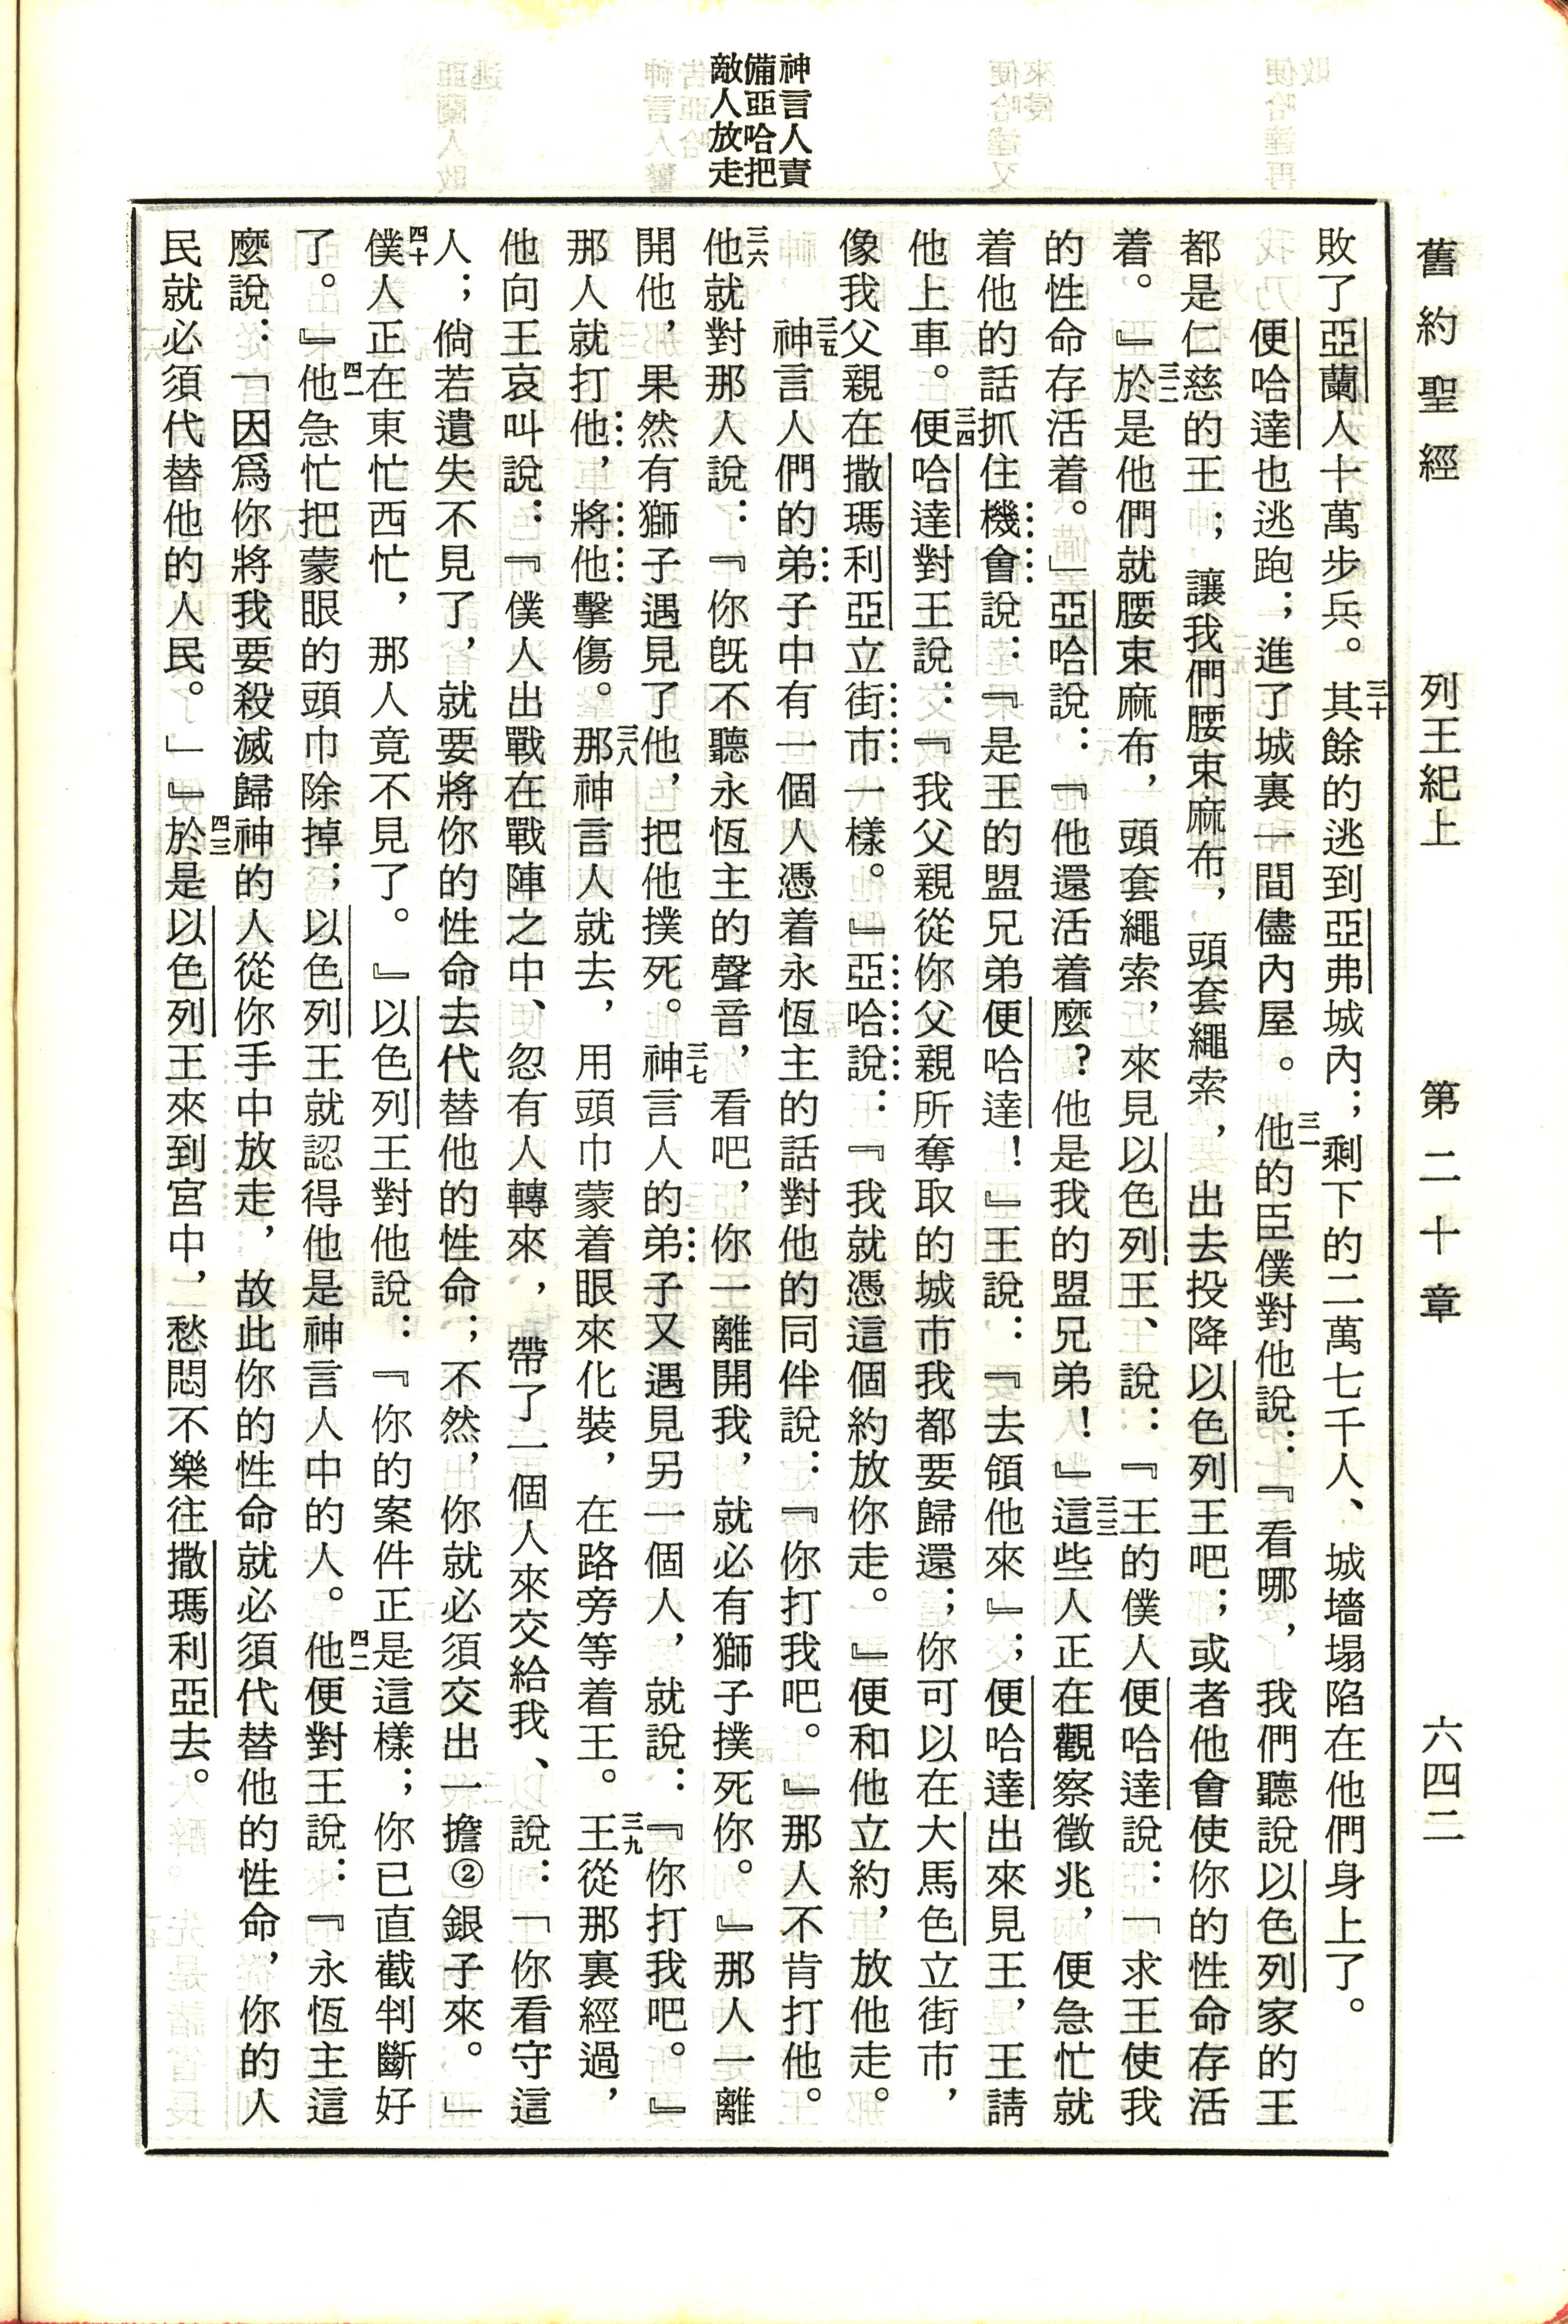 舊約聖經　列王紀上　第二十章　六四二
神言人責
備亞哈把
敵人放走
敗了亞蘭人十萬步兵。三十其餘的逃到亞弗城內；剩下的二萬七千人、城墻塌陷在他們身上了。
便哈達也逃跑；進了城裏一間儘內屋。三一他的臣僕對他說：『看哪，我們聽說以色列家的王
都是仁慈的王；讓我們腰束麻布，頭套繩索，出去投降以色列王吧；或者他會使你的性命存活
着。』三二於是他們就腰束麻布，頭套繩索，來見以色列王、說：『王的僕人便哈達說：「求王使我
的性命存活着。」亞哈說：『他還活着麼？他是我的盟兄弟！』三三這些人正在觀察徵兆，便急忙就
着他的話抓住機會說：『是王的盟兄弟便哈達！』王說：『去領他來』；便哈達出來見王，王請
他上車。三四便哈達對王說：『我父親從你父親所奪取的城市我都要歸還；你可以在大馬色立街市，
像我父親在撒瑪利亞立街市一樣。』亞哈說：『我就憑這個約放你走。』便和他立約，放他走。
三五神言人們的弟子中有一個人憑着永恆主的話對他的同伴說：『你打我吧。』那人不肯打他。
三六他就對那人說：『你旣不聽永恆主的聲音，看吧，你一離開我，就必有獅子撲死你。』那人一離
開他，果然有獅子遇見了他，把他撲死。三七神言人的弟子又遇見另一個人，就說：『你打我吧。』
那人就打他，將他擊傷。三八那神言人就去，用頭巾蒙着眼來化裝，在路旁等着王。三九王從那裏經過，
他向王哀叫說：『僕人出戰在戰陣之中、忽有人轉來，帶了一個人來交給我、說：「你看守這
人；倘若遺失不見了，就要將你的性命去代替他的性命；不然，你就必須交出一擔②銀子來。」
四十僕人正在東忙西忙，那人竟不見了。』以色列王對他說：『你的案件正是這樣；你已直截判斷好
了。』四一他急忙把蒙眼的頭巾除掉；以色列王就認得他是神言人中的人。四二他便對王說：『永恆主這
麼說：「因爲你將我要殺滅歸神的人從你手中放走，故此你的性命就必須代替他的性命，你的人
民就必須代替他的人民。」』四三於是以色列王來到宮中，愁悶不樂往撒瑪利亞去。